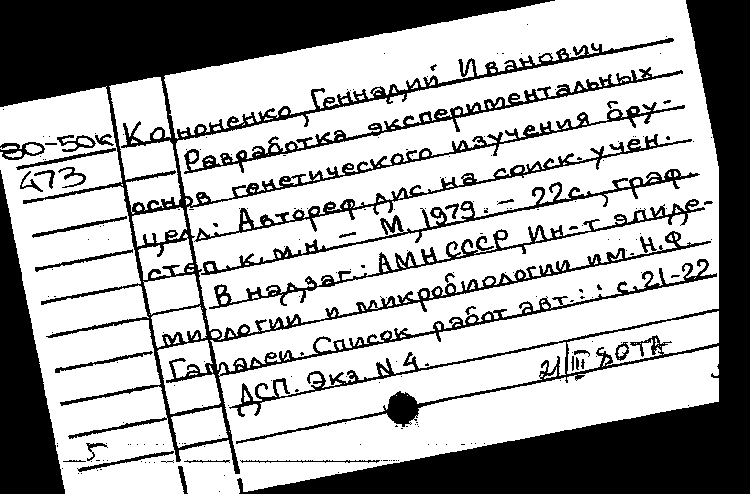 80-50к Кононенко, Геннадий Иванович.
473 Разработка экспериментальных
основ генетического изучения бру-
целл: Автореф. дис. на соиск. учен.
степ. к.м.н. – М., 1979. – 22с., граф.
В надзаг.: АМН СССР, Ин-т эпиде-
миологии и микробиологии им. Н.Ф.
Гамалеи. Список работ авт.: с.21-22
ДСП. Экз. N 4.
21/III 80
5